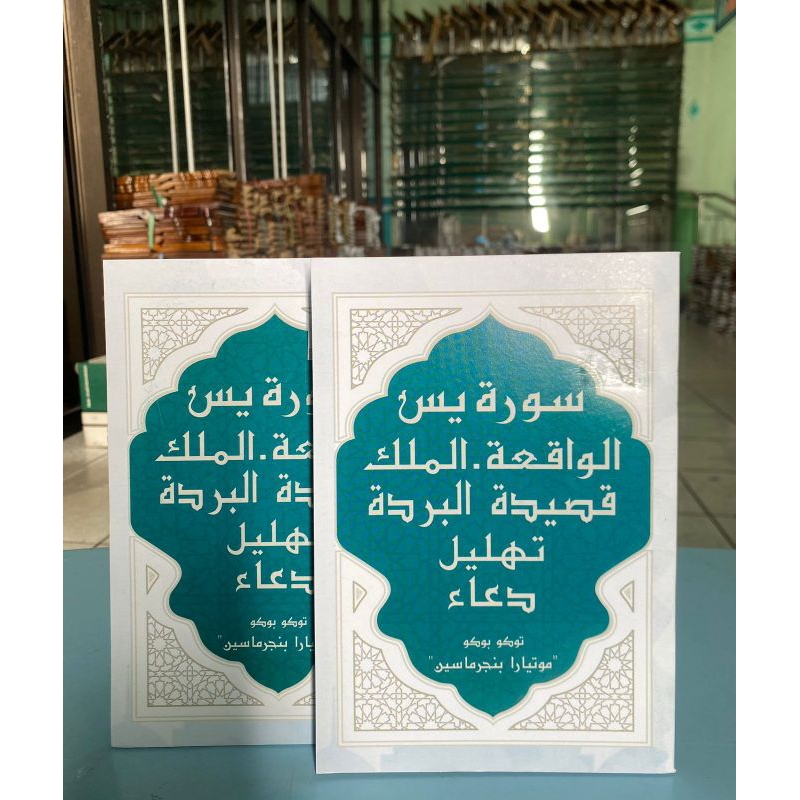 سورة يس
الواقعة. الملك
قصيدة البردة
تهليل
دعاء
توكو بوكو
"موتيارا بنجرماسين"
رة يس
عة. الملك
دة البردة
هليل
دعاء
توكو بوكو
يارا بنجرماسين"